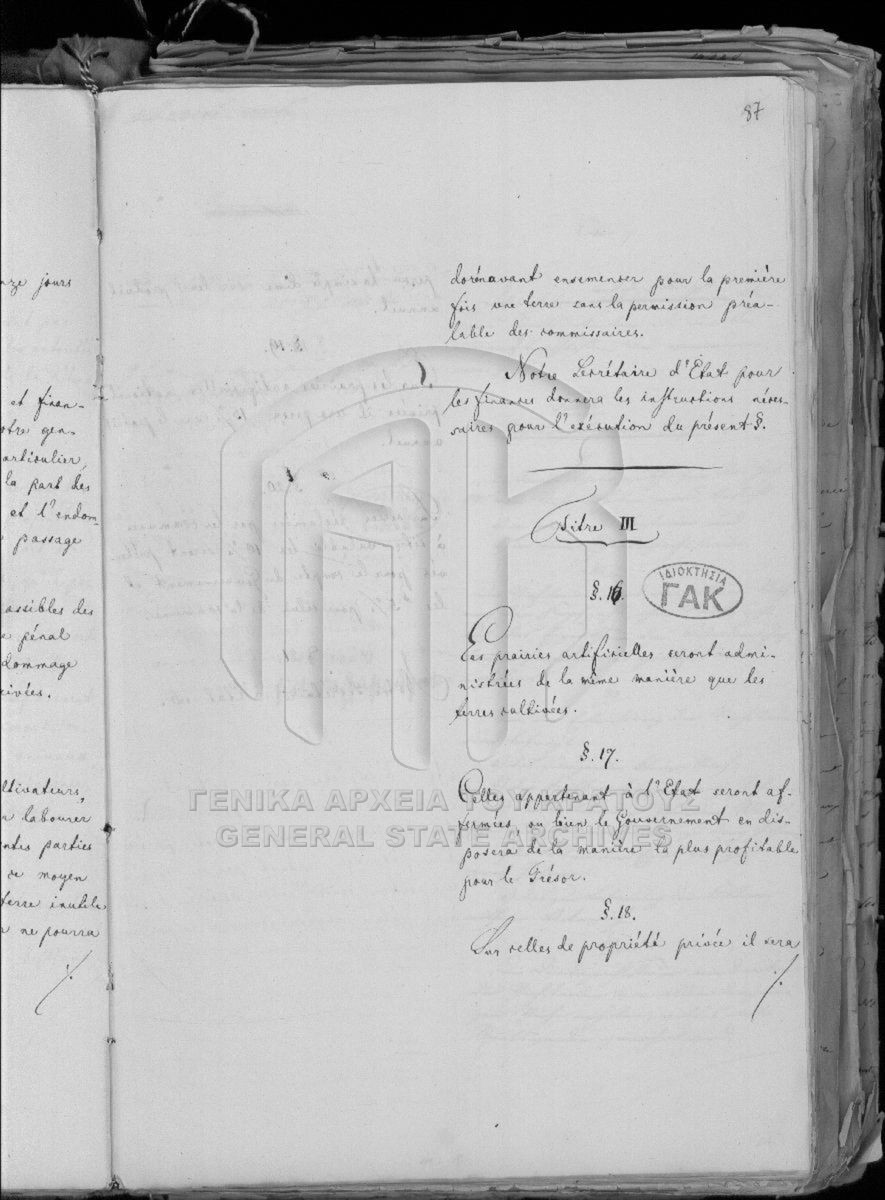 nze jours
et finan-
otre gen-
articulier,
la part des
et l'endom-
passage
assibles des
e pénal
dommage
ceivées.
ltivateurs,
labourer
ntes parties
ce moyen
terre inutile
ne pourra
87
dorénavant ensemencer pour la première
fois une terre sans la permission préa-
lable des commissaires.
Notre Secrétaire d'Etat pour
les finances donnera les instructions néces-
saires pour l'exécution du présent §.
Titre III
§. 16.
ΙΔΙΟΚΤΗΣΙΑ
ΓΑΚ
Les prairies artificielles seront admi-
nistrées de la même manière que les
terres cultivées.
§. 17.
Celles appartenant à l'Etat seront af-
fermées, ou bien le Gouvernement en dis-
posera de la manière la plus profitable
pour le Trésor.
§. 18.
Sur celles de propriété privée il sera
ΓΕΝΙΚΑ ΑΡΧΕΙΑ ΤΟΥ ΚΡΑΤΟΥΣ
GENERAL STATE ARCHIVES